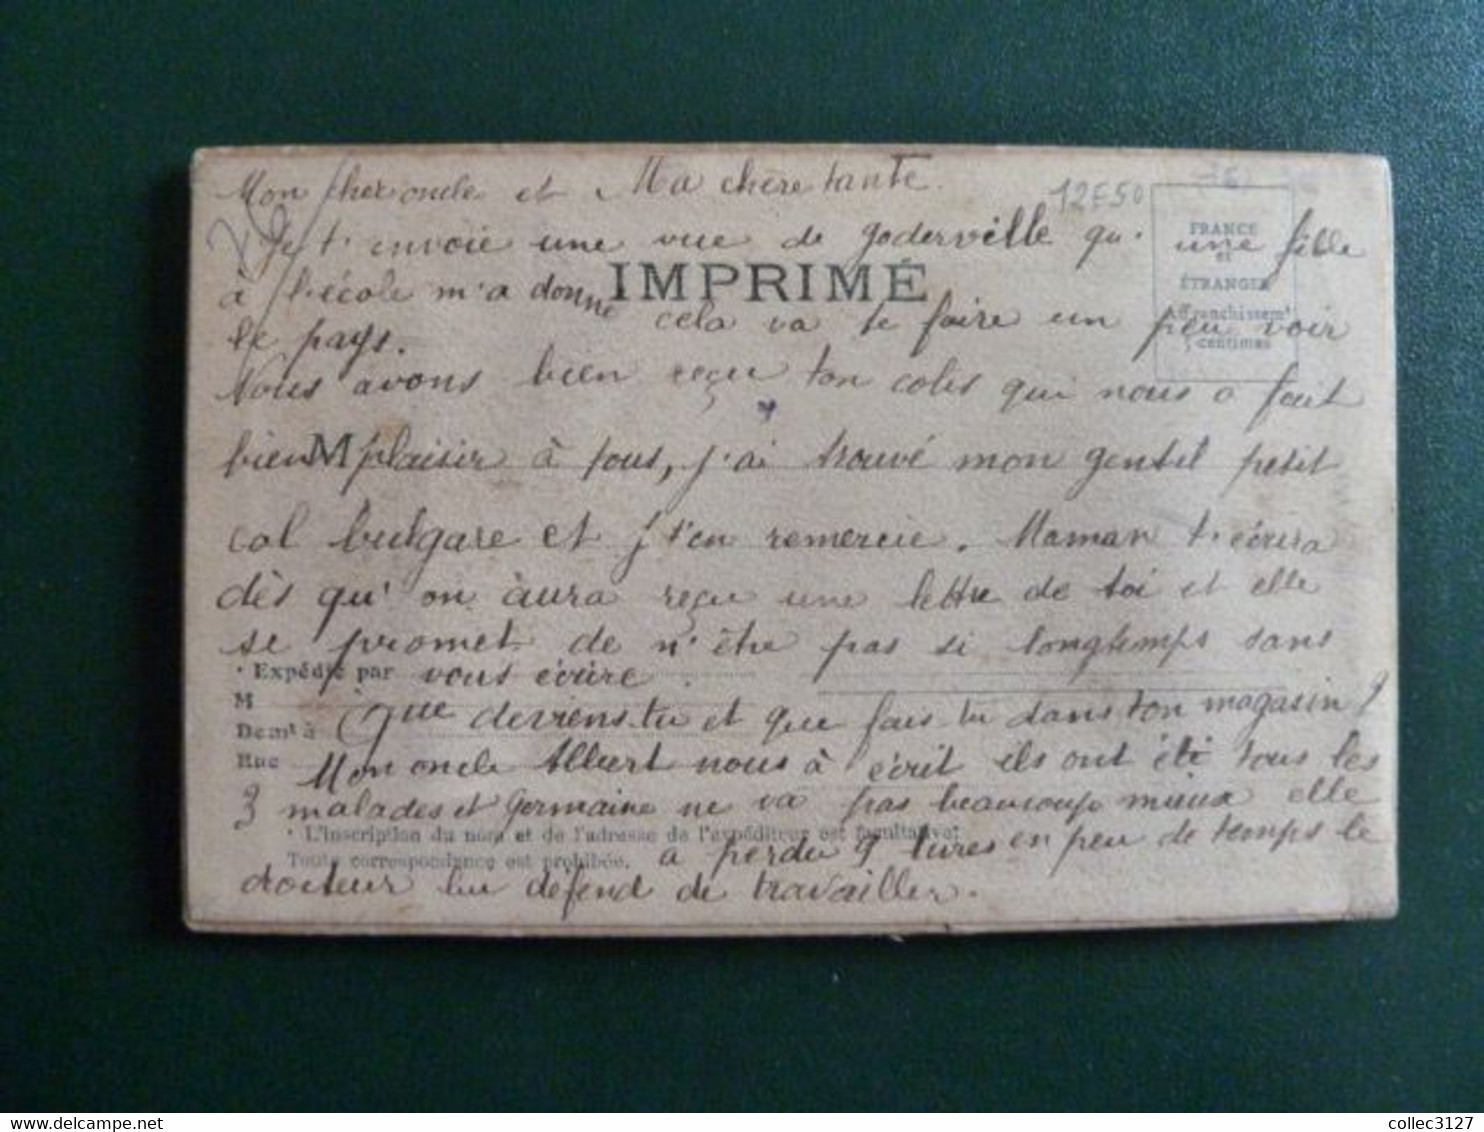 Mon cher oncle et Ma chère tante.
12E50
Je t'envoie une vue de goderville qu'une fille
FRANCE
et
ÉTRANGER
Affranchissemt
centimes
IMPRIMÉ
à l'école m'a donné cela va te faire un peu voir
le pays.
Nous avons bien reçu ton colis qui nous a fait
bien plaisir à tous, j'ai trouvé mon gentil petit
M
col bulgare et j t'en remercie. Maman t'écrira
dès qu'on àura reçu une lettre de toi et elle
se promet de n'être pas si longtemps sans
vous écrire.
• Expédié par
M
Demt à
Rue
Que deviens-tu et que fais tu dans ton magasin?
Mon oncle Albert nous à écrit ils ont été tous les
3 malades et Germaine ne va pas beaucoup mieux elle
• L'inscription du nom et de l'adresse de l'expéditeur est facultative.
Toute correspondance est prohibée.
a perdu 9 livres en peu de temps le
docteur lui défend de travailler.
collec3127